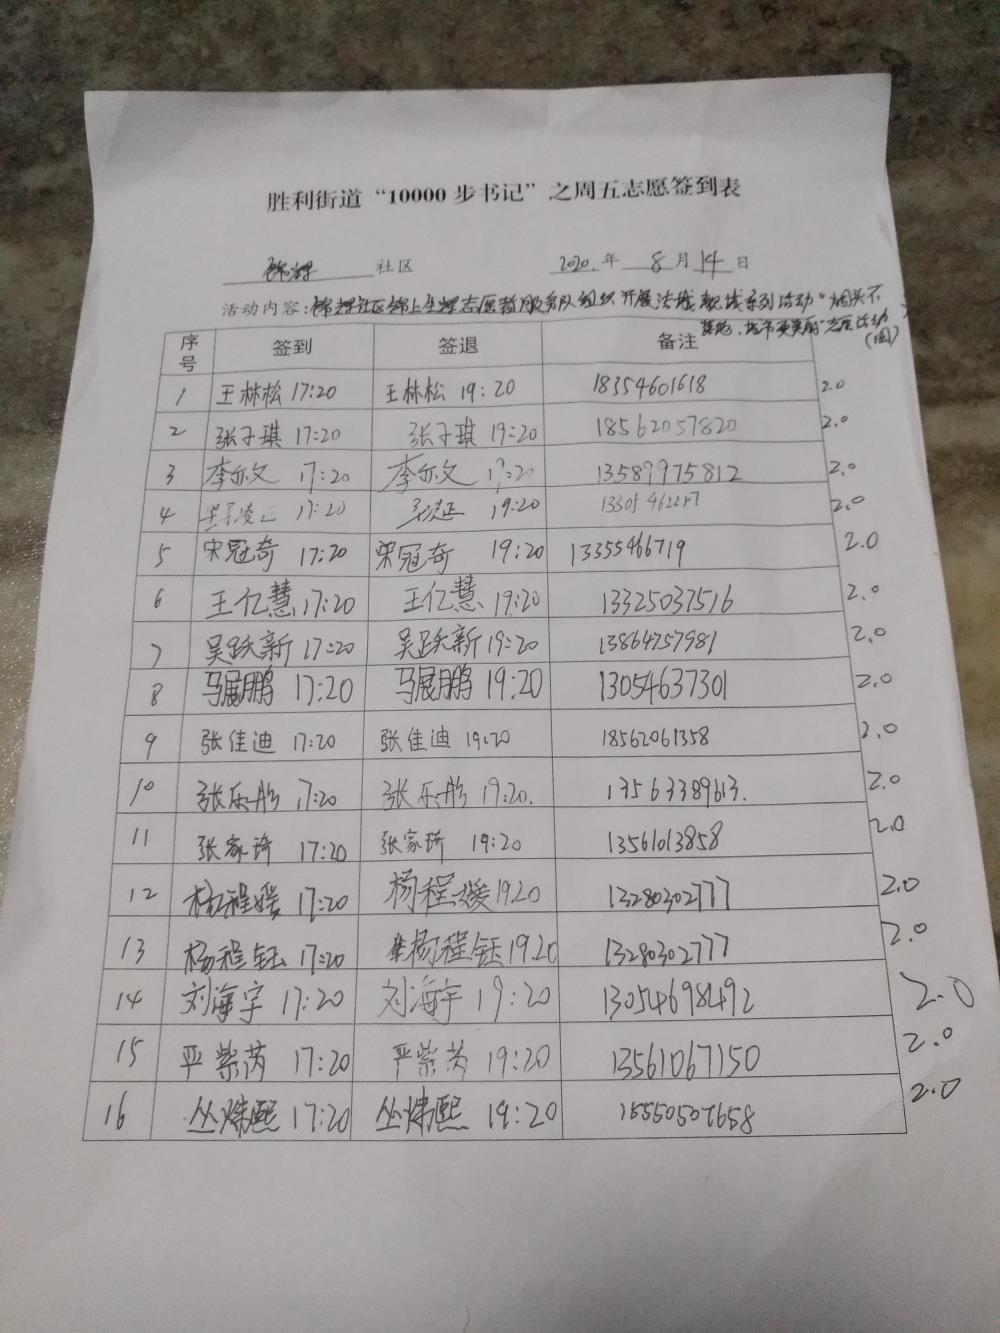 胜利街道“10000步书记”之周五志愿签到表
锦辉 社区 2020.年 8月14日
活动内容：锦辉社区锦上生辉志愿者服务队组织开展 系列活动“烟头不
落地，城市更美丽”志愿活动
序号 签到 签退 备注
1 王林松 17:20 王林松 19:20 18354601618 2.0
2 张子琪 17:20 张子琪 19:20 18562057820 2.0
3 李亦文 17:20 李亦文 19:20 13589975812 2.0
4 17:20 19:20 2.0
5 宋冠奇 17:20 宋冠奇 19:20 13355466719 2.0
6 王亿慧 17:20 王亿慧 19:20 13325037516 2.0
7 吴跃新 17:20 吴跃新 19:20 13864757981 2.0
8 马展鹏 17:20 马展鹏 19:20 13054637301 2.0
9 张佳迪 17:20 张佳迪 19:20 18562061358 2.0
10 张乐彤 17:20 张乐彤 19:20. 13563389613. 2.0
11 张家琦 17:20 张家琦 19:20 13561013858 2.0
12 杨程媛 17:20 杨程媛 19.20 13280302777 2.0
13 杨程钰 17:20 杨程钰 19.20 13280302777 2.0
14 刘海宇 17:20 刘海宇 19:20 13054698492 2.0
15 严紫芮 17:20 严紫芮 19:20 13561067150 2.0
16 丛熙 17:20 丛熙 19:20 15550507658 2.0